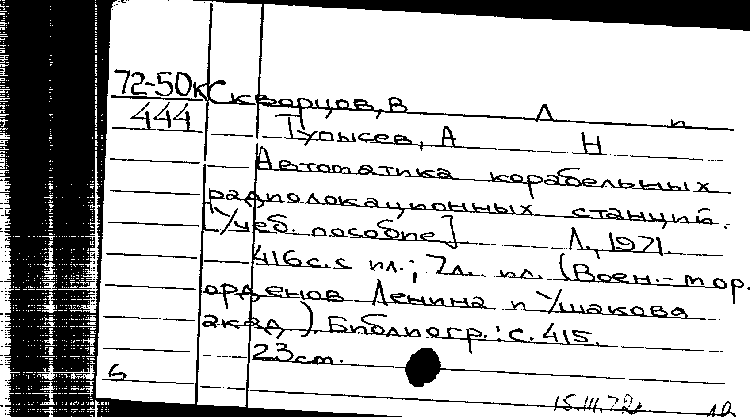 72-50к Скворцов, В Д п
444 Тупысев, А Н
Автоматика корабельных
радиолокационных станций.
[Учеб. пособие] Л., 1971.
416 с. с ил.; 7 л. ил. (Воен.-мор.
орденов Ленина и Ушакова
акад.). Библиогр.: с. 415.
23 см.
6
15.III.72